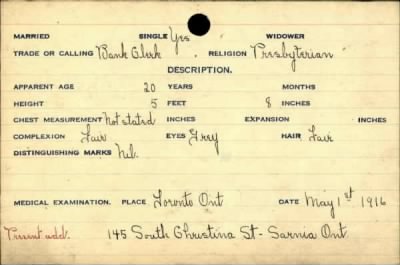 MARRIED SINGLE Yes WIDOWER
TRADE OR CALLING Bank Clerk RELIGION Presbyterian
DESCRIPTION.
APPARENT AGE 20 YEARS MONTHS
HEIGHT 5 FEET 8 INCHES
CHEST MEASUREMENT Not stated INCHES EXPANSION INCHES
COMPLEXION Fair EYES Grey HAIR Fair
DISTINGUISHING MARKS Nil.
MEDICAL EXAMINATION. PLACE Toronto Ont DATE May 1st 1916
Present add. 145 South Christina St - Sarnia Ont.